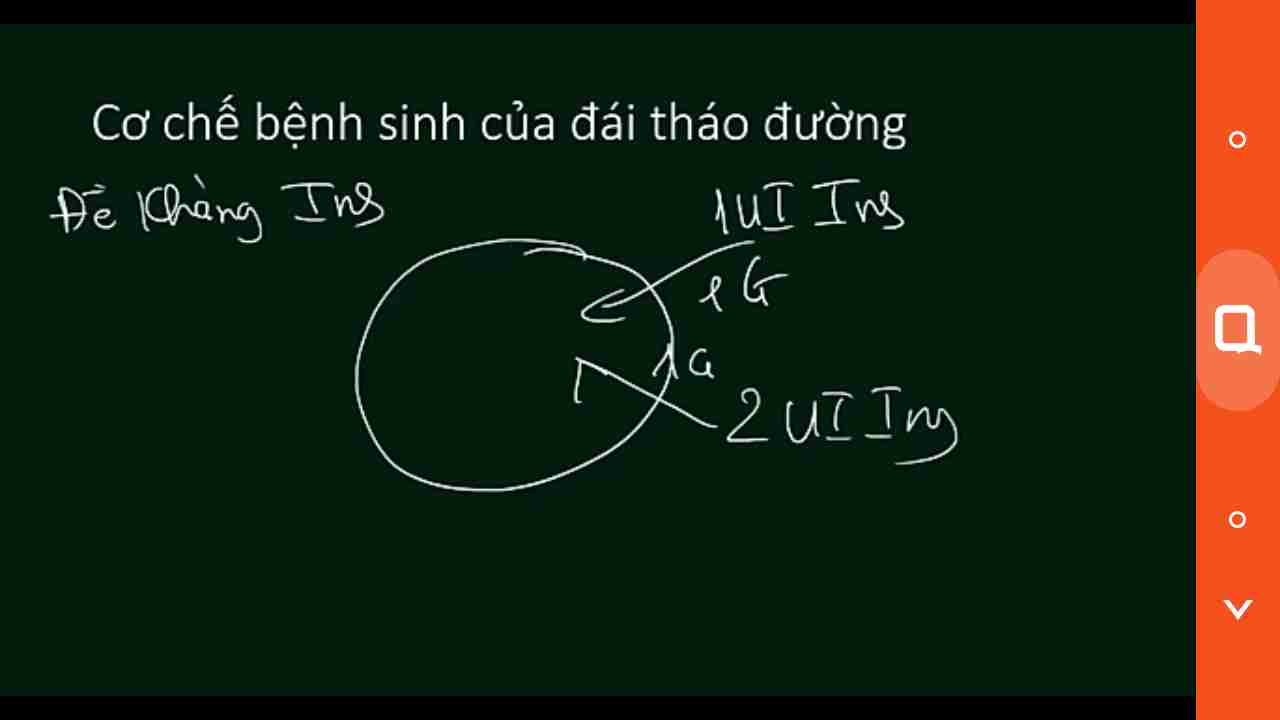 Cơ chế bệnh sinh của đái tháo đường
Đề Kháng Ins
1UI Ins
1G
1G
2 UI Ins